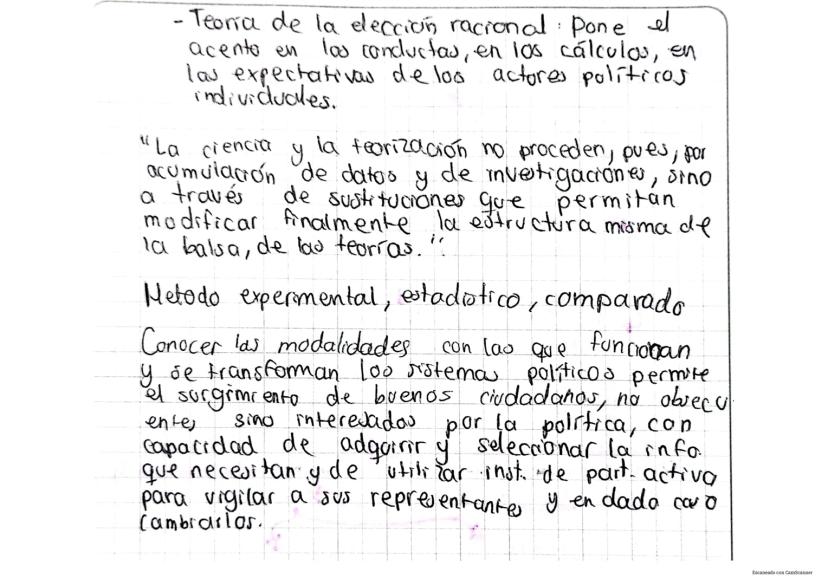 - Teoría de la elección racional: Pone el
acento en las conductas, en los cálculos, en
las expectativas de los actores políticos
individuales.
"La ciencia y la teorización no proceden, pues, por
acumulación de datos y de investigaciones, sino
a través de sustituciones que permitan
modificar finalmente la estructura misma de
la balsa, de las teorías.".
Metodo experimental, estadístico, comparado
Conocer las modalidades con las que funcionan
y se transforman los sistemas políticos permite
el surgimiento de buenos ciudadanos, no obsecu
entes, sino interesados por la política, con
capacidad de adquirir y seleccionar la info.
que necesitan y de utilizar inst. de part. activa
para vigilar a sus representantes y en dado caso
cambiarlos.
Escaneado con CamScanner